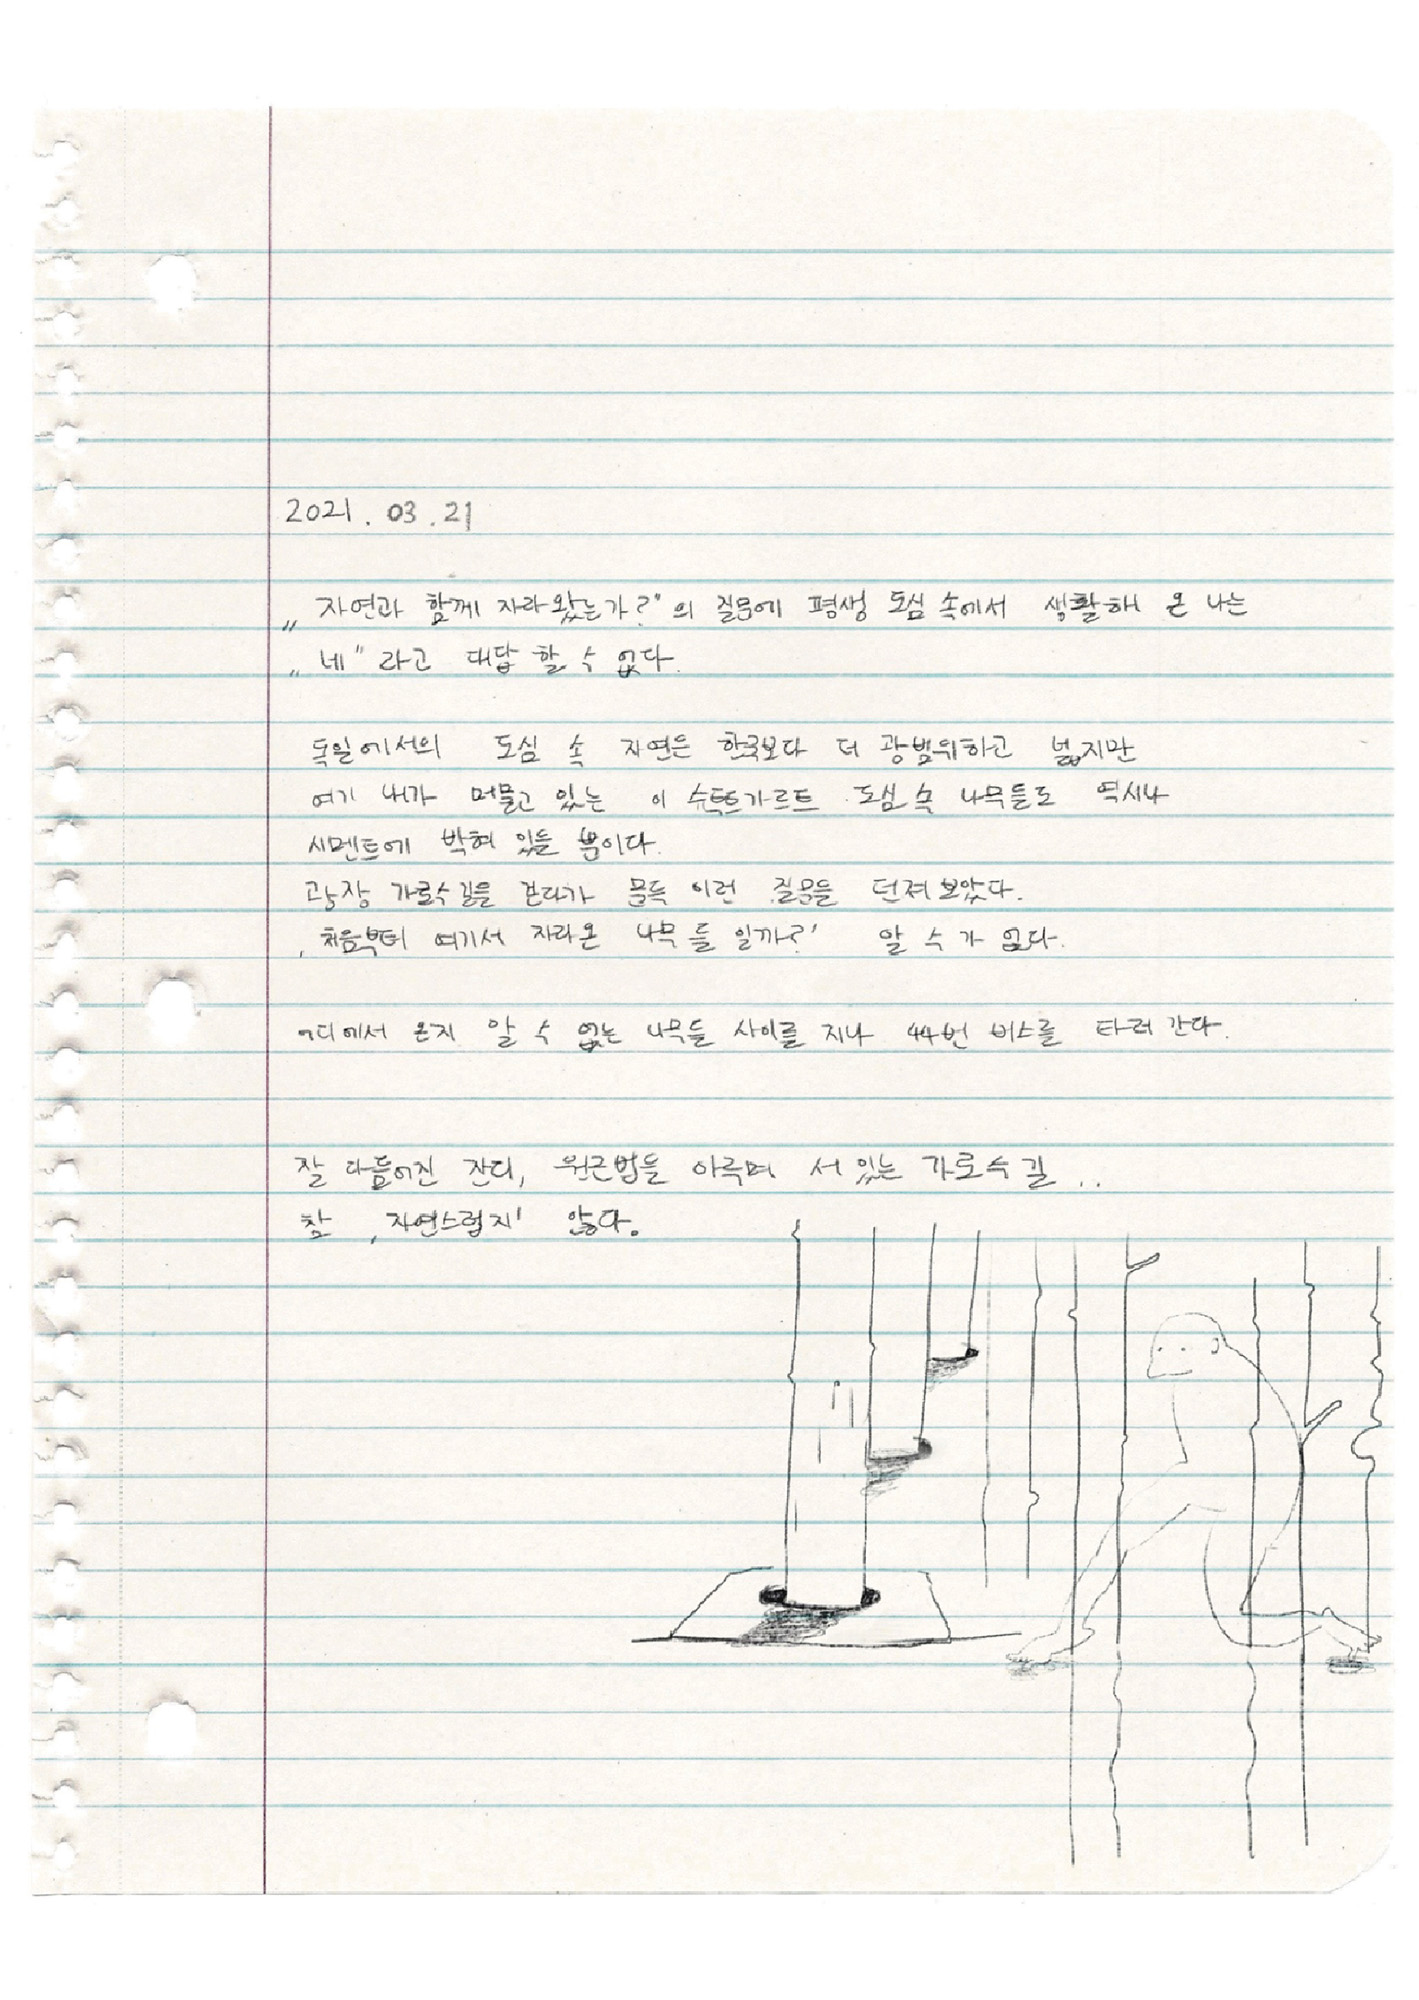 2021. 03. 21
„자연과 함께 자라왔는가?"의 질문에 평생 도심 속에서 생활해 온 나는
„네"라고 대답 할 수 없다.
독일에서의 도심 속 자연은 한국보다 더 광범위하고 넓지만
여기 내가 머물고 있는 이 슈투트가르트 도심 속 나무들도 역시나
시멘트에 박혀 있을 뿐이다.
광장 가로수길을 걷다가 문득 이런 질문을 던져보았다.
‚처음부터 여기서 자라온 나무들 일까?' 알 수가 없다.
어디에서 온지 알 수 없는 나무들 사이를 지나 44번 버스를 타러 간다.
잘 다듬어진 잔디, 원근법을 이루며 서 있는 가로수길..
참 ‚자연스럽지' 않다.